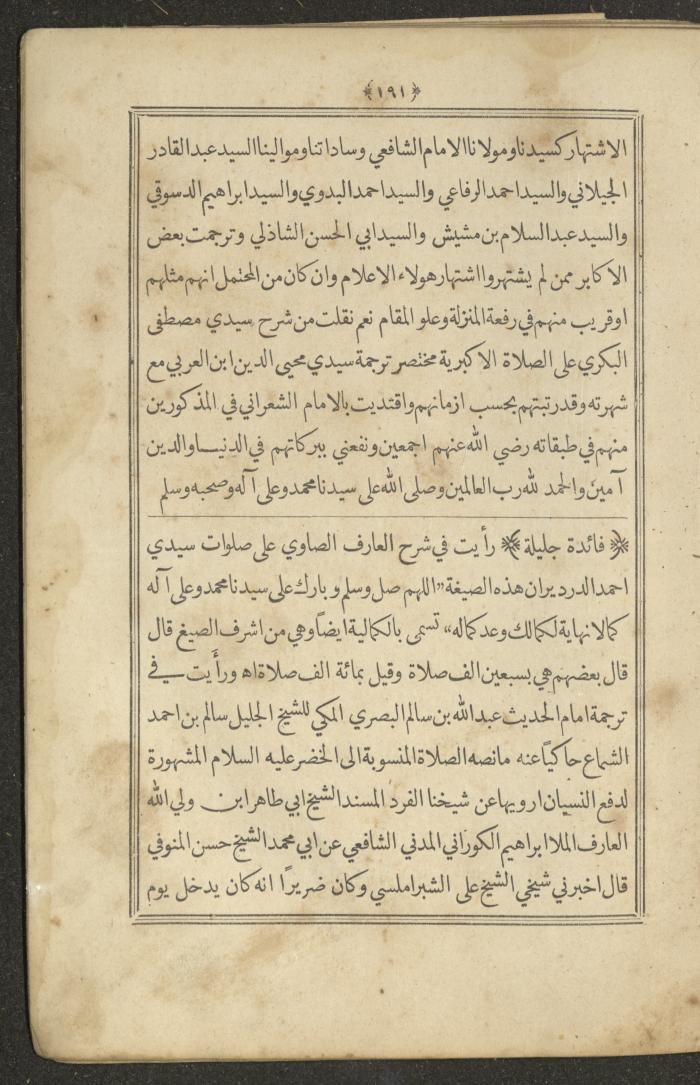 ﴿١٩١﴾
الاشتهار كسيدنا ومولانا الامام الشافعي وساداتنا وموالينا السيد عبد القادر
الجيلاني والسيد احمد الرفاعي والسيد احمد البدوي والسيد ابراهيم الدسوقي
والسيد عبد السلام بن مشيش والسيد ابي الحسن الشاذلي وترجمت بعض
الاكابر ممن لم يشتهروا اشتهار هولاء الاعلام وان كان من المحتمل انهم مثلهم
او قريب منهم في رفعة المنزلة وعلو المقام نعم نقلت من شرح سيدي مصطفى
البكري على الصلاة الاكبرية مختصر ترجمة سيدي محيي الدين ابن العربي مع
شهرته وقد رتبتهم بحسب ازمانهم واقتديت بالامام الشعراني في المذكورين
منهم في طبقاته رضي الله عنهم اجمعين ونفعني ببركاتهم في الدنيا والدين
آمين والحمد لله رب العالمين وصلى الله على سيدنا محمد وعلى آله وصحبه وسلم
﴿ فائدة جليلة ﴾ رأيت في شرح العارف الصاوي على صلوات سيدي
احمد الدردير ان هذه الصيغة «اللهم صل وسلم وبارك على سيدنا محمد وعلى آله
كما لا نهاية لكمالك وعد كماله» تسمى بالكمالية ايضاً وهي من اشرف الصيغ قال
قال بعضهم هي بسبعين الف صلاة وقيل بمائة الف صلاة اه ورأيت في
ترجمة امام الحديث عبد الله بن سالم البصري المكي للشيخ الجليل سالم بن احمد
الشماع حاكياً عنه ما نصه الصلاة المنسوبة الى الخضر عليه السلام المشهورة
لدفع النسيان ارويها عن شيخنا الفرد المسند الشيخ ابي طاهر ابن ولي الله
العارف الملا ابراهيم الكوراني المدني الشافعي عن ابي محمد الشيخ حسن المنوفي
قال اخبرني شيخي الشيخ على الشبراملسي وكان ضريرًا انه كان يدخل يوم